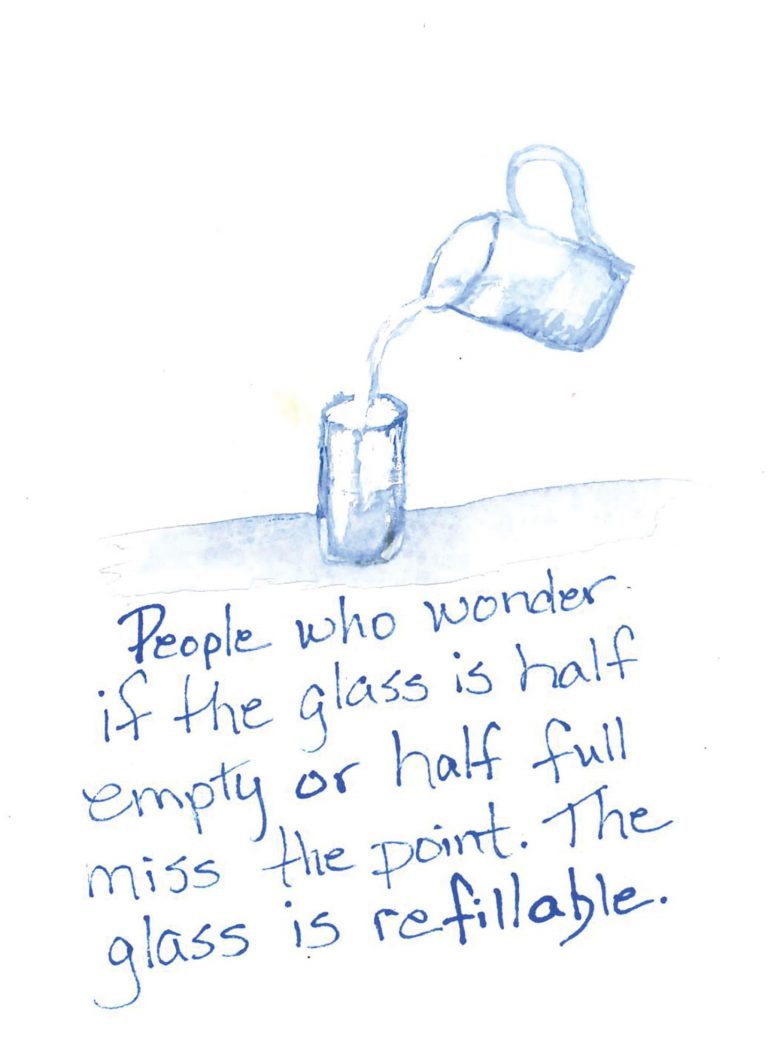 People who wonder
if the glass is half
empty or half full
miss the point. The
glass is refillable.